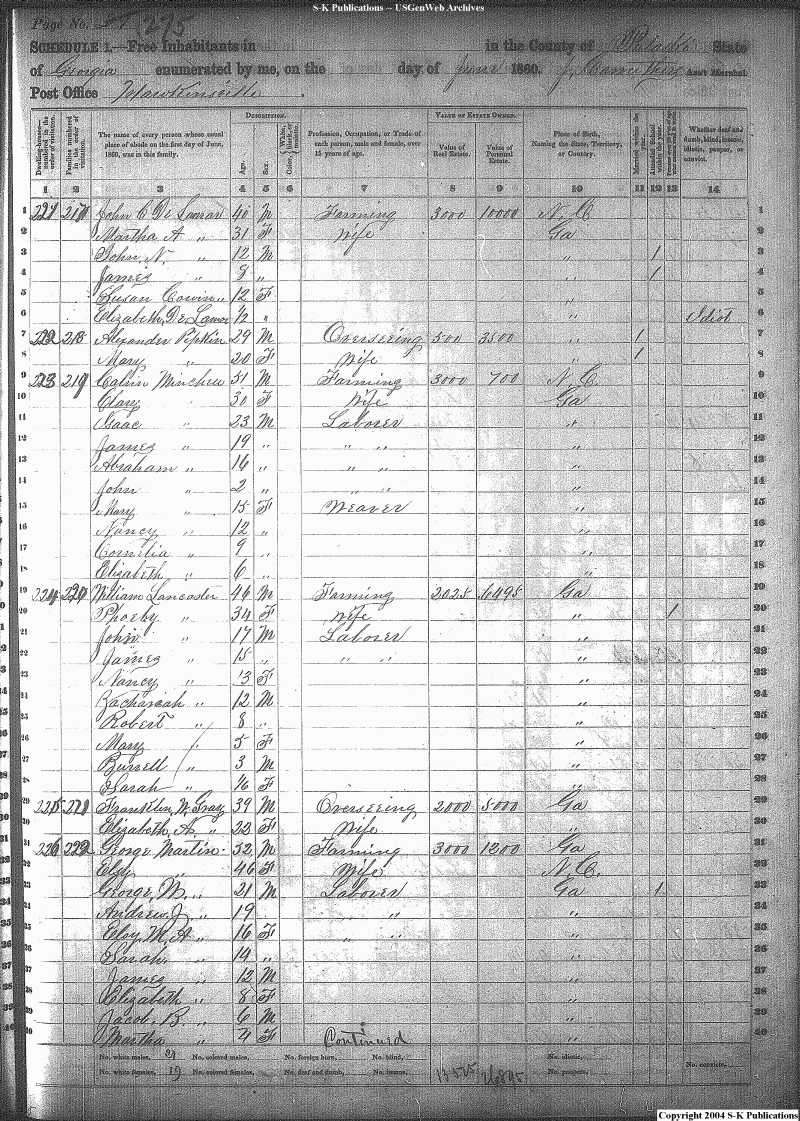 S-K Publications – USGenWeb Archives
Page No. 275
SCHEDULE 1.—Free Inhabitants in in the County of Pulaski State
of Georgia enumerated by me, on the day of June 1860. Ass't Marshal
Post Office Hawkinsville
DESCRIPTION. VALUE OF ESTATE OWNED.
Dwelling-houses—numbered in the order of visitation. Families numbered in the order of visitation. The name of every person whose usual place of abode on the first day of June, 1860, was in this family. Age. Sex. Color, Profession, Occupation, or Trade of each person, male and female, over 15 years of age. Value of Real Estate. Value of Personal Estate. Place of Birth, Naming the State, Territory, or Country. Married within the year. Attended School within the year. Whether deaf and dumb, blind, insane, idiotic, pauper, or convict.
1 2 3 4 5 6 7 8 9 10 11 12 13 14
1 221 217 John C De Lamar 40 M Farming 3000 10000 N. C 1
2 Martha A " 31 F Wife Ga 2
3 John, N. " 12 M " 1 3
4 James " 8 " " 1 4
5 Susan " 12 F " 5
6 Elizabeth, De Lamar " " Idiot 6
7 222 218 Alexander Pipkin 29 M Overseering 500 3500 " 1 7
8 Mary " 20 F Wife " 1 8
9 223 219 Calvin Minchew 51 M Farming 3000 700 N. C. 9
10 Clary " 30 F Wife Ga 10
11 Isaac " 23 M Laborer " 11
12 James " 19 " " " " 12
13 Abraham " 16 " " " " 13
14 John " 2 " " 14
15 Mary " 15 F Weaver " 15
16 Nancy " 12 " " 16
17 Cornelia " 9 " " 17
18 Elizabeth " 6 " " 18
19 224 220 William Lancaster 46 M Farming 2025 6495 Ga 19
20 Phoeby " 34 F Wife " 1 20
21 John " 17 M Laborer " 21
22 James " 15 " " " " 22
23 Nancy " 13 F " 23
24 Zachariah " 12 M " 24
25 Robert " 8 " " 25
26 Mary " 5 F " 26
27 Burrell " 3 M " 27
28 Sarah " F " 28
29 225 221 Franklin, W. Gray 39 M Overseering 2000 5000 Ga 29
30 Elizabeth, A. " 22 F Wife " 30
31 226 222 George Martin 52 M Farming 3000 1200 Ga 31
32 Elsy " 46 F Wife N. C. 32
33 George, M. " 21 M Laborer Ga 1 33
34 Andrew, J " 19 " " " 34
35 Elsy, M, A " 16 F " " " 35
36 Sarah, " 14 " " 36
37 James " 12 M " 37
38 Elizabeth " 8 F " 38
39 Jacob, B. " 6 M " 39
40 Martha " 4 F Continued " 40
No. white males, 21 No. colored males, No. foreign born, No. blind, No. idiotic, No. convicts,
No. white females, 19 No. colored females, No. deaf and dumb, No. insane, 13525 26895 No. paupers,
Copyright 2004 S-K Publications